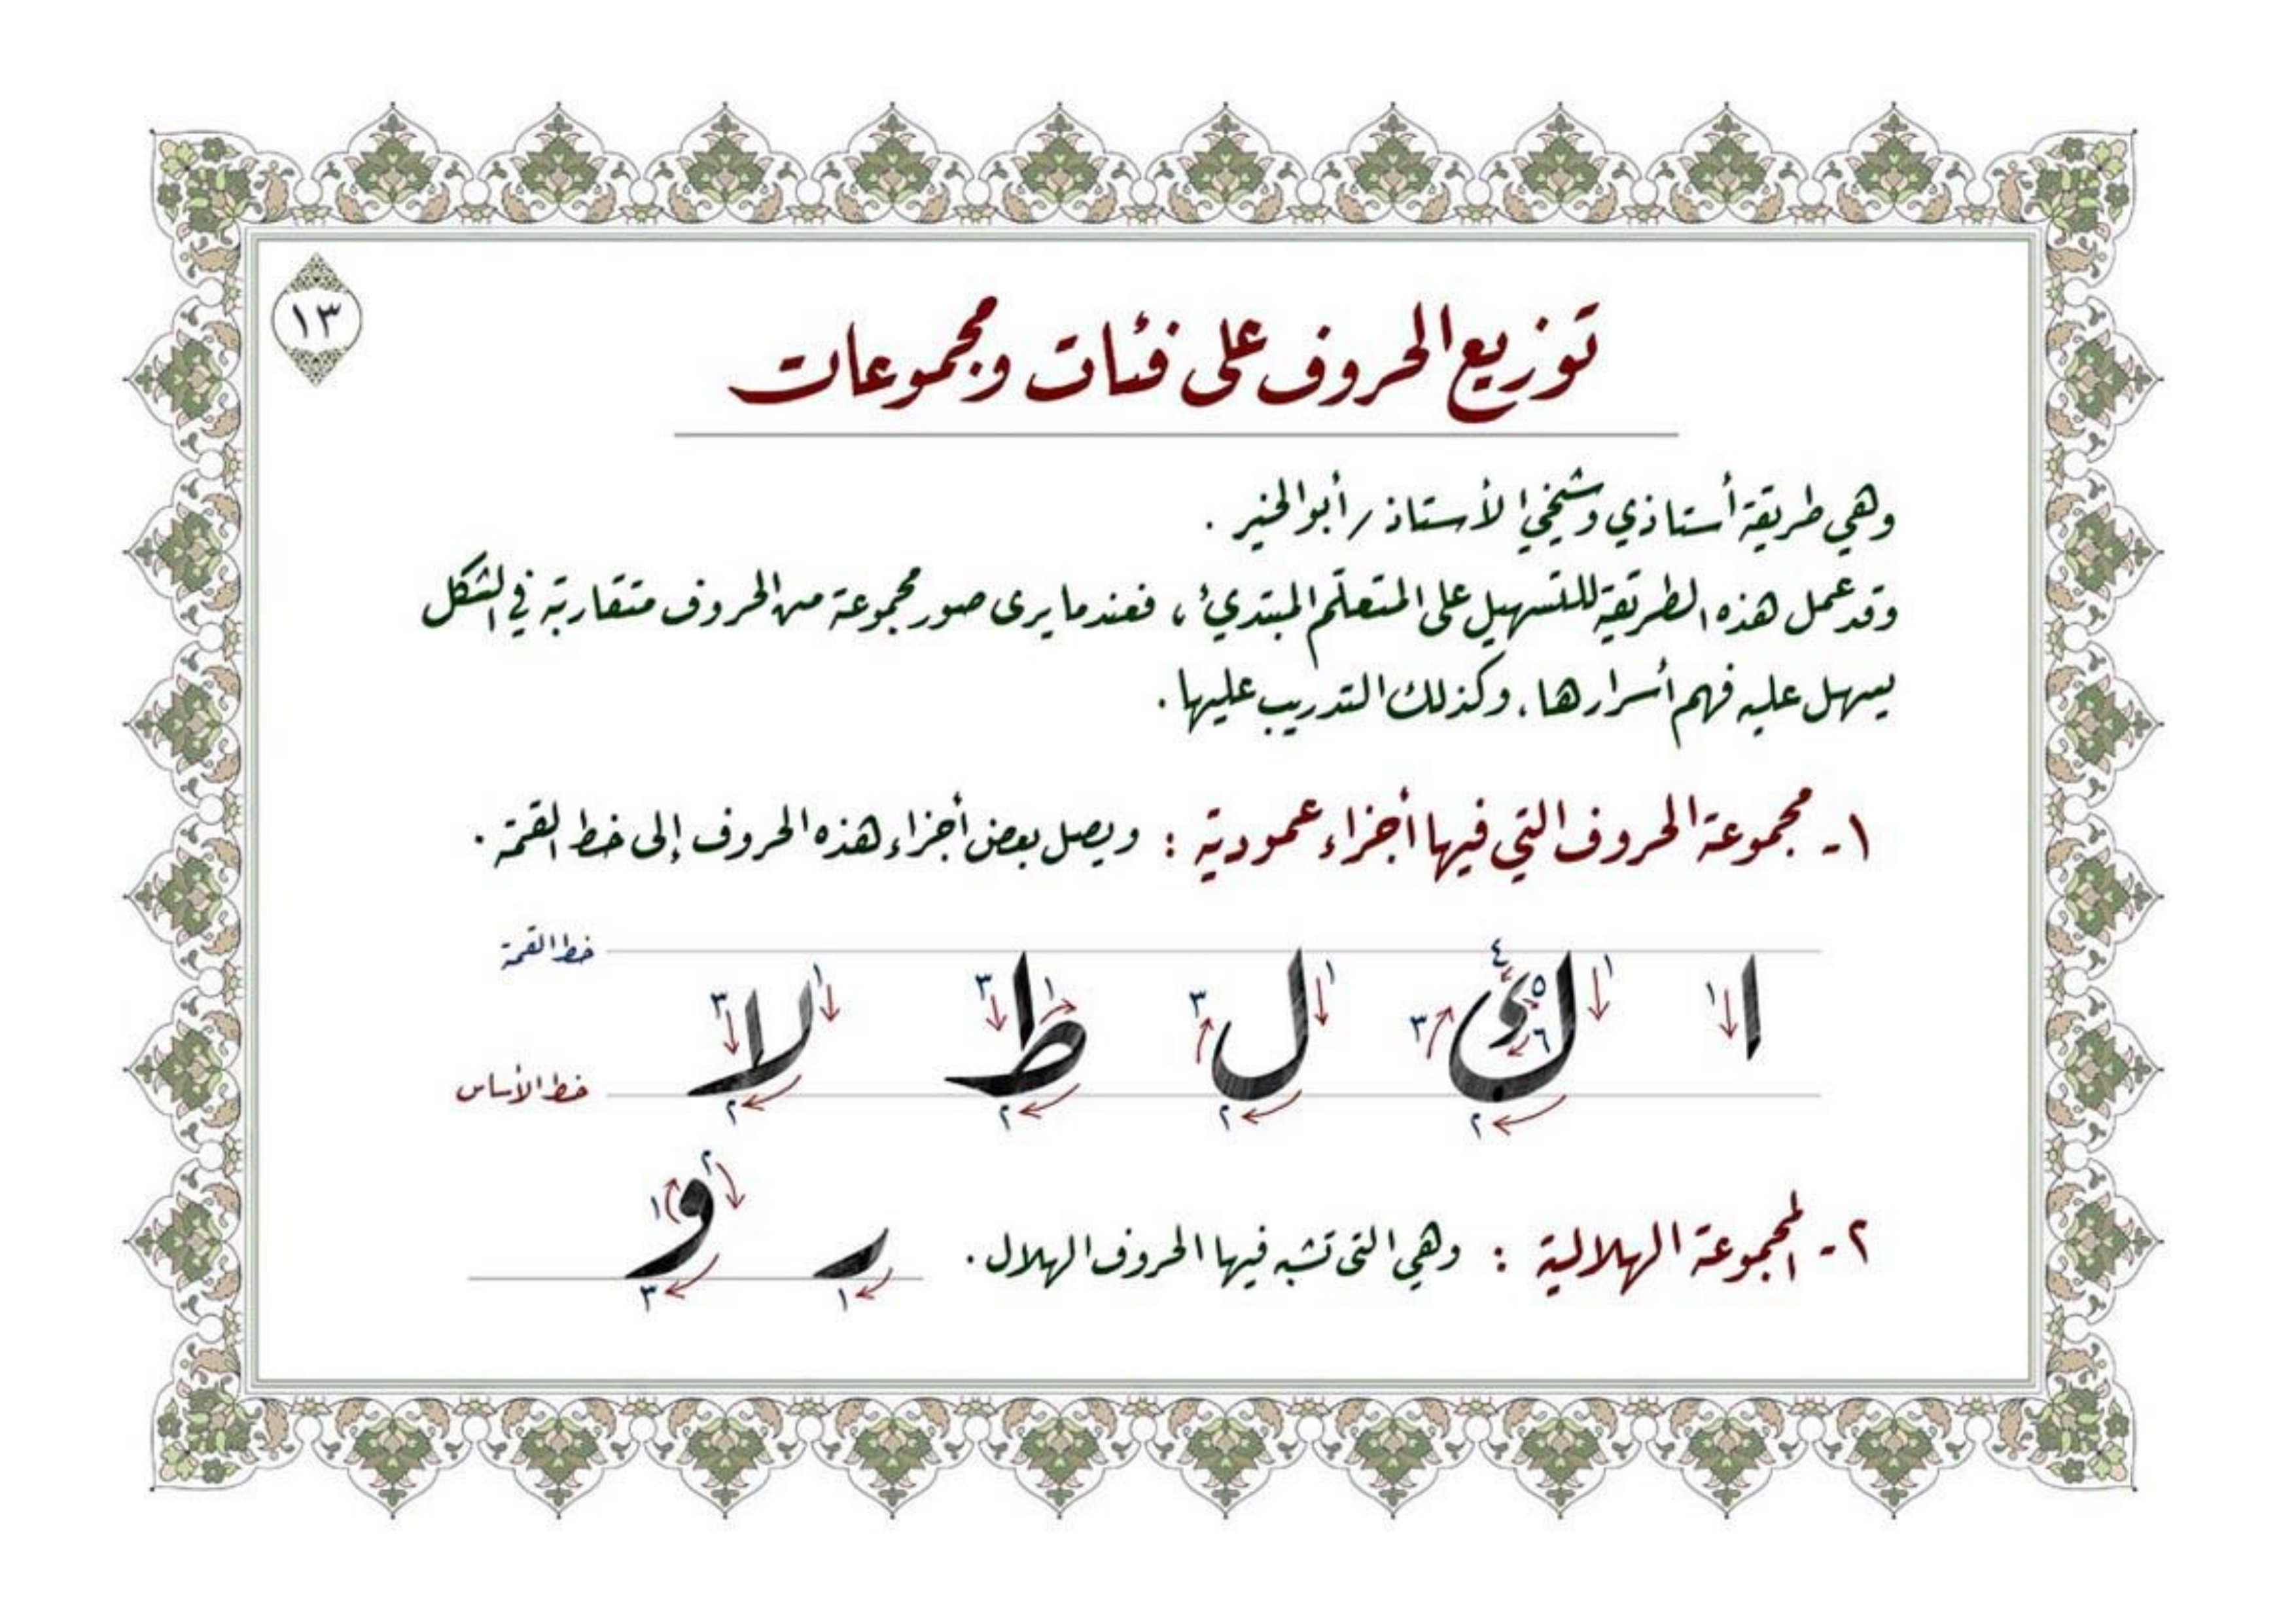 ١٣
توزيع الحروف على فئات ومجموعات
وهي طريقة أستاذي وشيخي الأستاذ / أبو الخير .
وقد عمل هذه الطريقة للتسهيل على المتعلّم المبتدئ ، فعندما يرى صور مجموعة من الحروف متقاربة في الشكل
يسهل عليه فهم أسرارها ، وكذلك التدريب عليها .
١- مجموعة الحروف التي فيها أجزاء عمودية : ويصل بعض أجزاء هذه الحروف إلى خط القمة .
خط القمة
ا ك ل ط لا
١ ١ ٢ ٣ ٤ ٥ ٦ ١ ٢ ٣ ١ ٢ ٣ ١ ٢ ٣
خط الأساس
٢- المجموعة الهلالية : وهي التي تشبه فيها الحروف الهلال .
ر و
١ ١ ٢ ٣